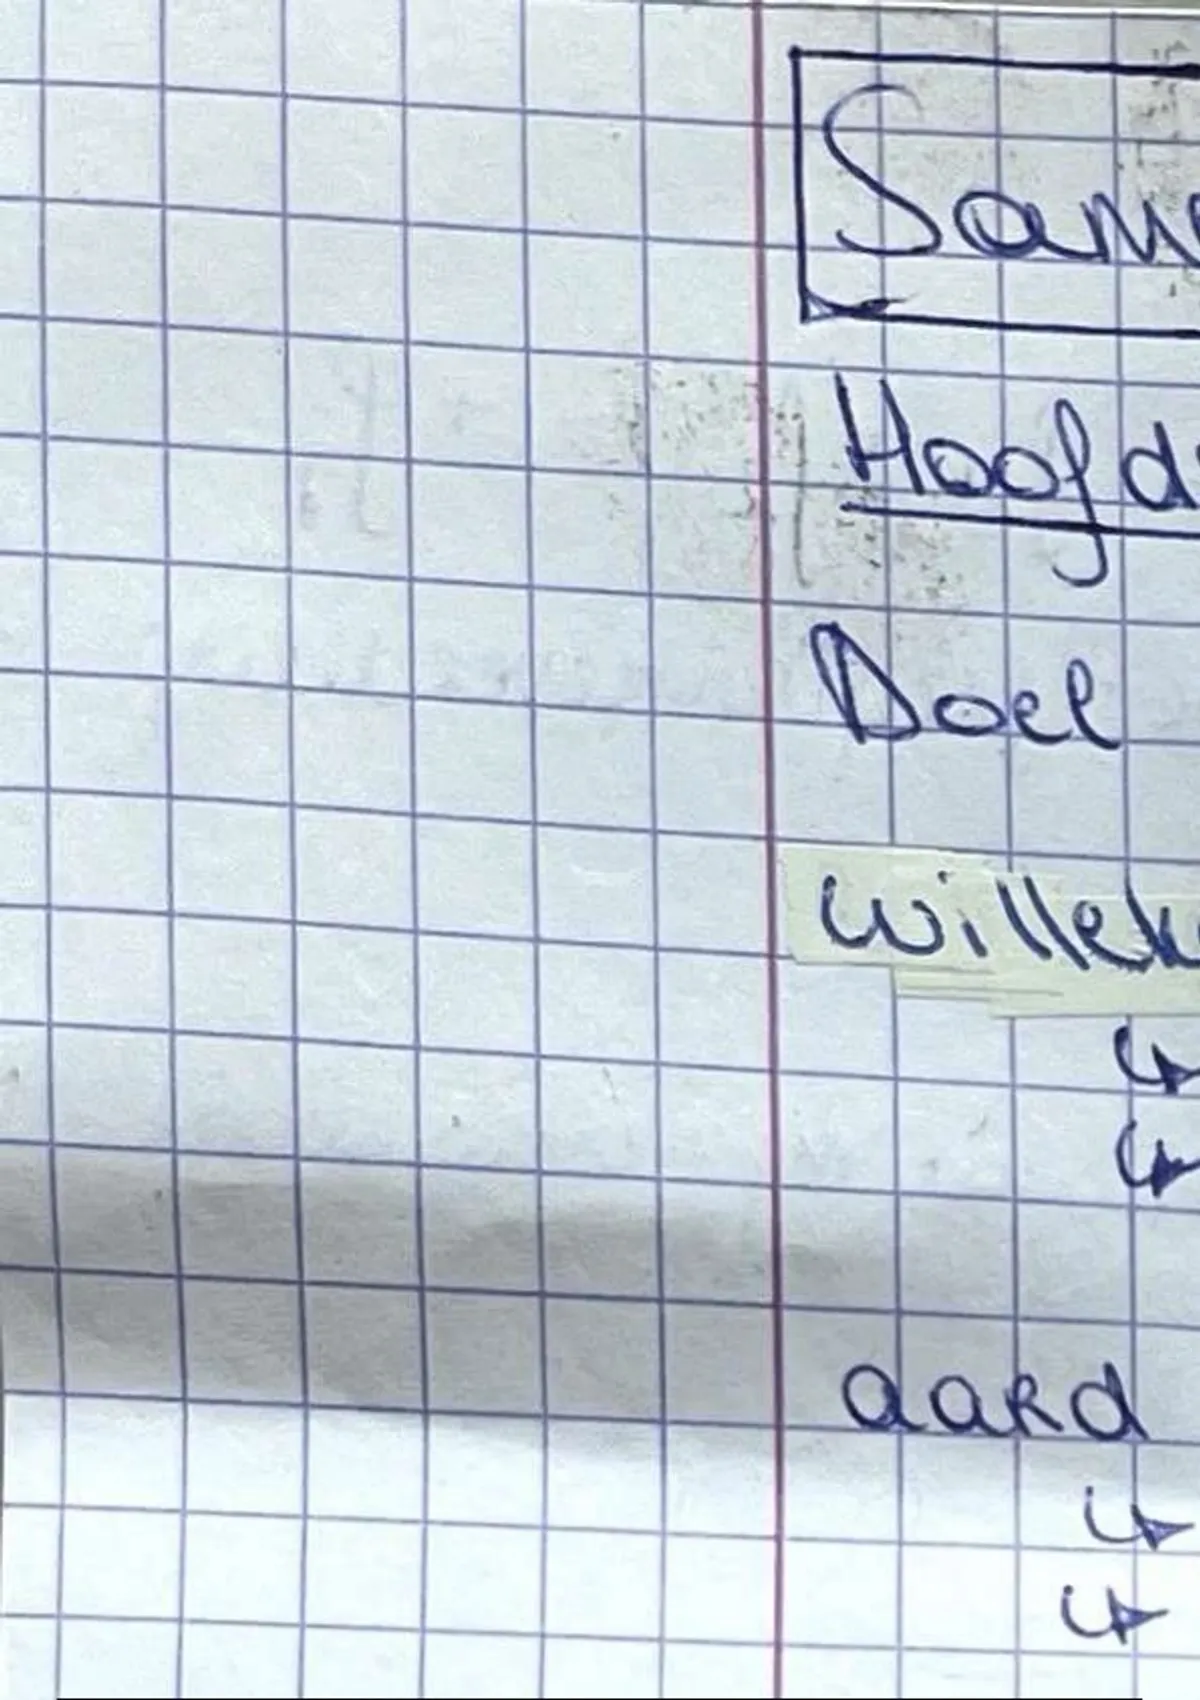 Same
Hoofd
Doel
willek
↳
↳
aard
↳
↳